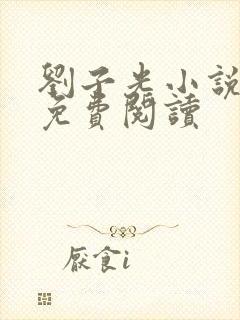 劉子光小說
免費閱讀
厭食i